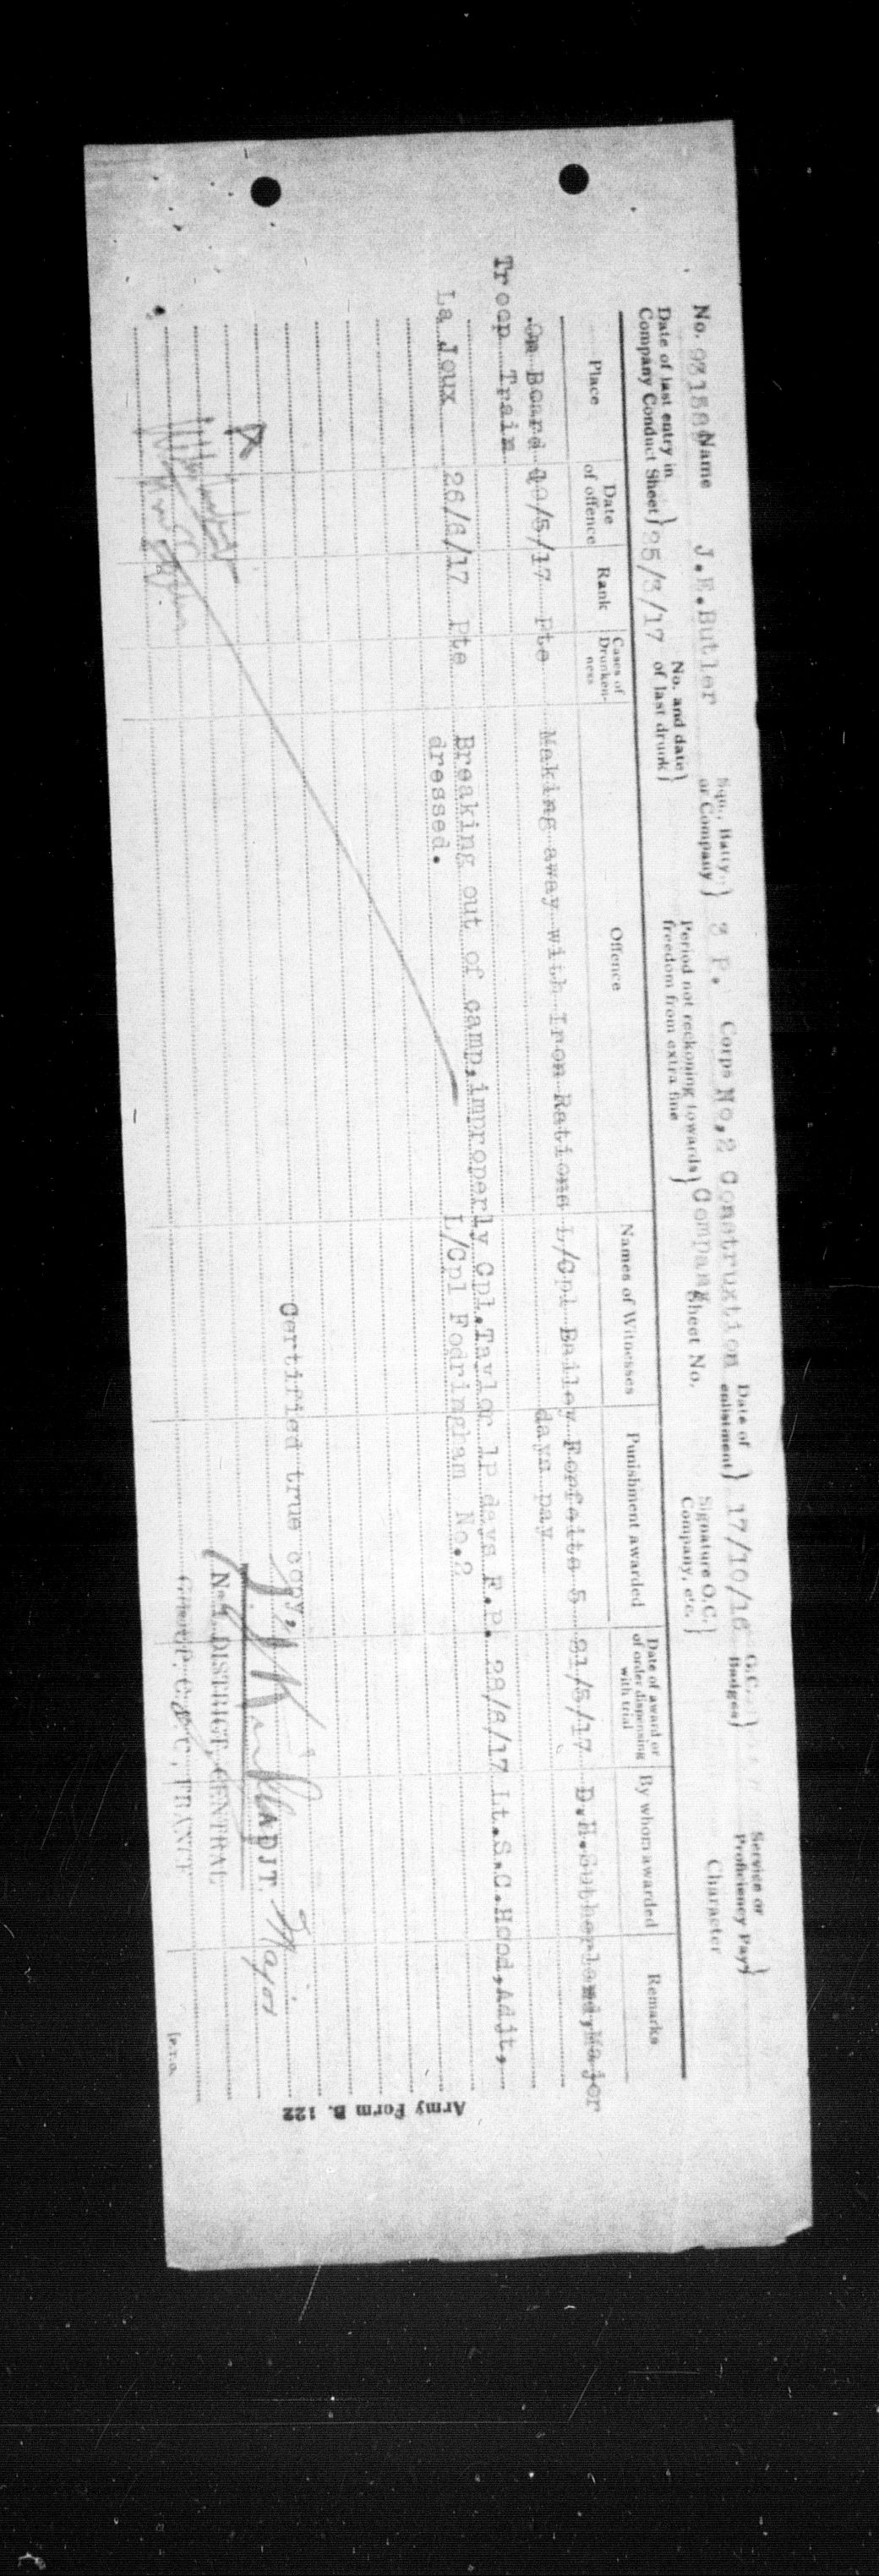 No. 931589 Name J.E.Butler Sqn., Batty., or Company } 3 P. Corps No,2 Construxtion Date of enlistment } 17/10/16 G.C. Badges } Service or Proficiency Pay }
Date of last entry in Company Conduct Sheet } 25/3/17 No. and date of last drunk } Period not reckoning towards freedom from extra fine } Company Sheet No. Signature O.C. Company, etc. } Character
Place Date of offence Rank Cases of Drunkenness Offence Names of Witnesses Punishment awarded Date of award or of order dispensing with trial By whom awarded Remarks
On Board /5/17 Pte Making away with Iron Rations L/Cpl Bailey Forfeits 5 31/5/17 D.H.Sutherland,Major
Troop Train days pay
La Joux 26/6/17 Pte Breaking out of camp,improperly Cpl.Taylor 1p days F.P. 28/6/17 Lt.S.C.Hood,Adjt,
dressed. L/Cpl Fodringham No.2
Certified true copy,
Major
ADJT.
No. 4 DISTRICT, CENTRAL
GROUP, C.F.C., FRANCE
[P.T.O.
Army Form B. 122